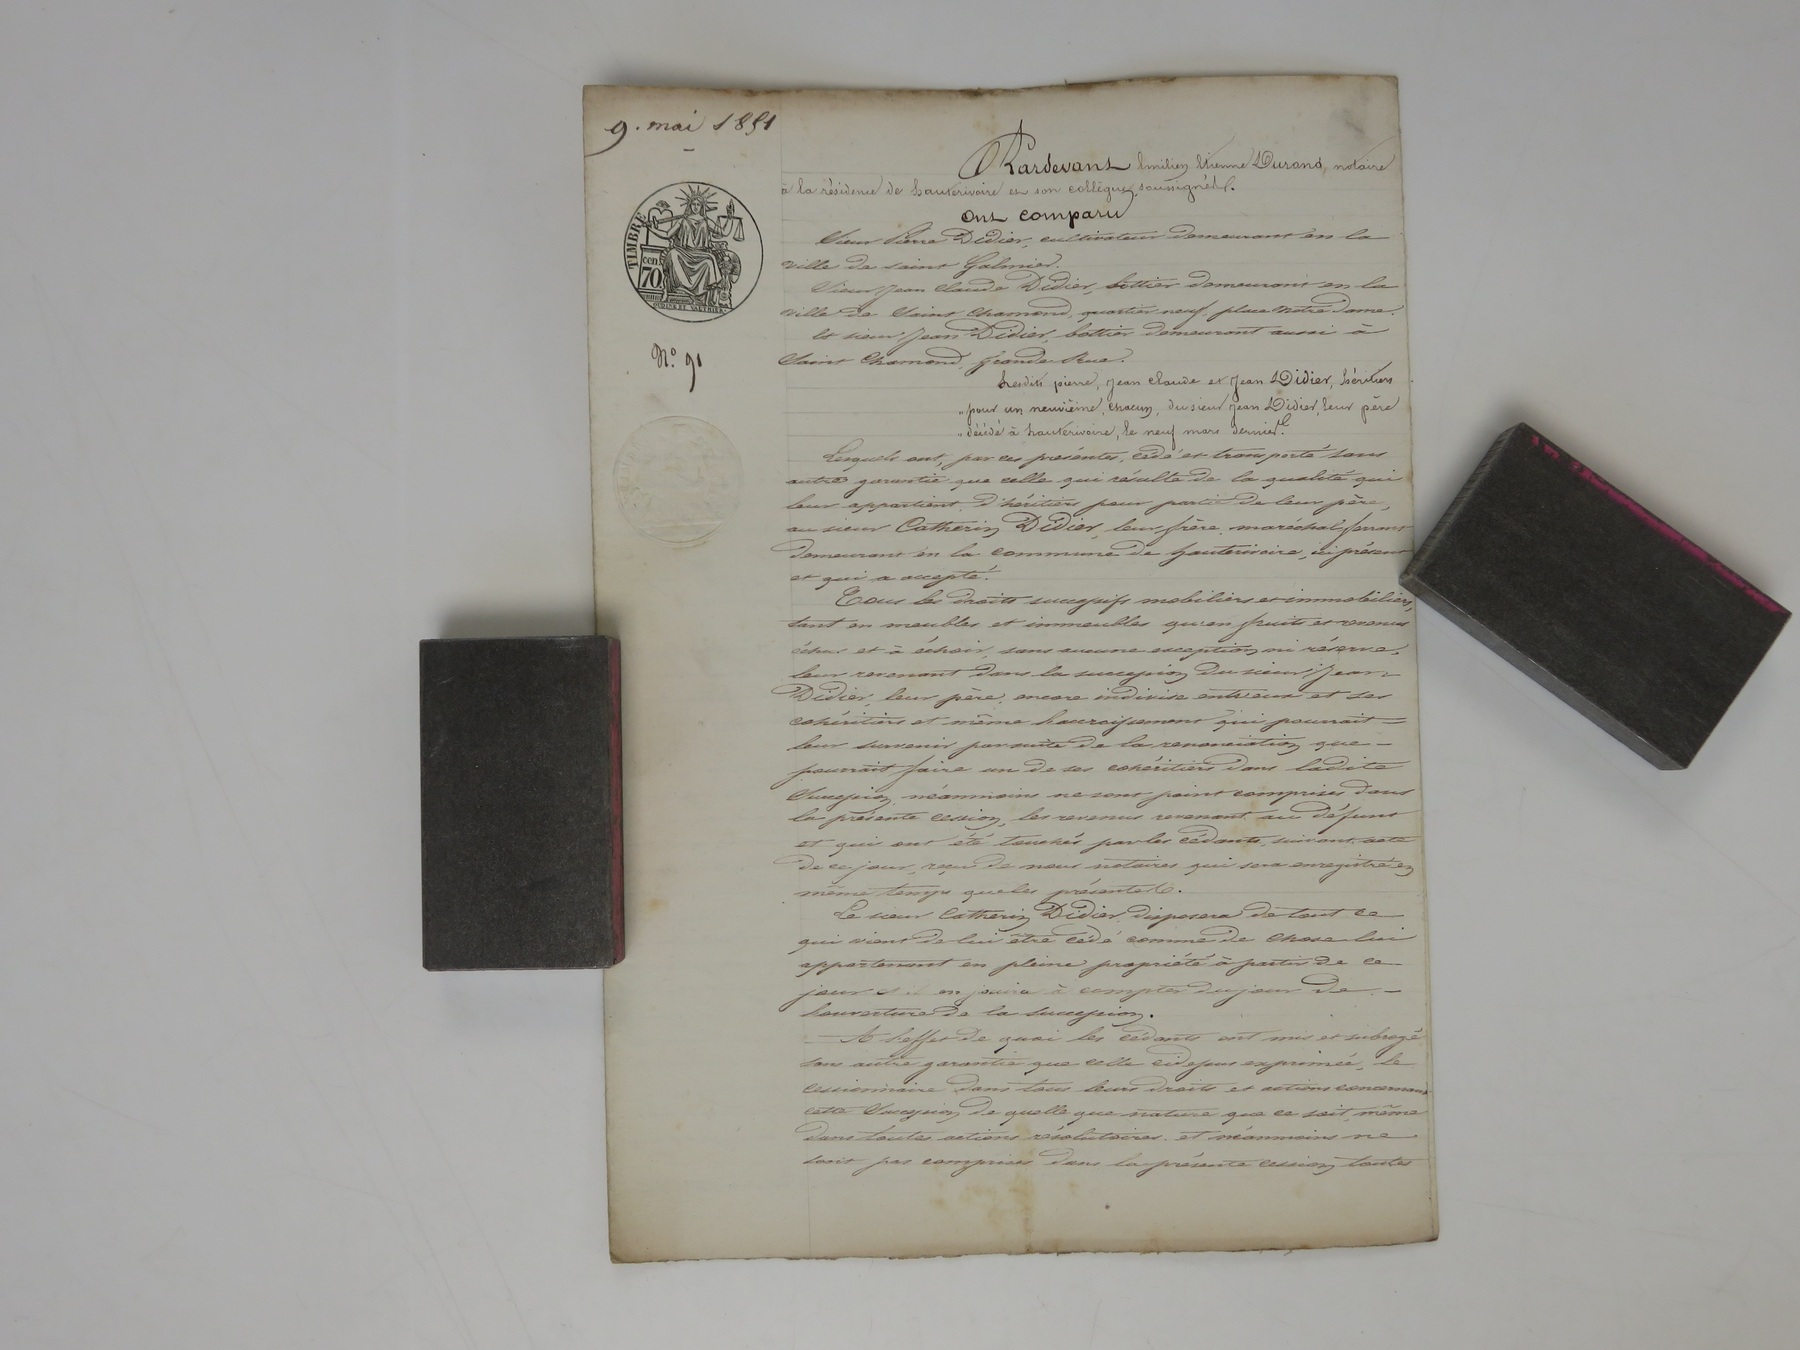 9. mai 1851
Pardevant Emilien Etienne Durand, notaire
à la résidence de hauterivoire et son collègue, soussignés.
ont comparu
Sieur Pierre Didier, cultivateur demeurant en la
ville de saint Galmier.
Sieur Jean Claude Didier, bottier demeurant en la
ville de Saint Chamond, quartier neuf, place Notre dame.
Et sieur Jean Didier, bottier demeurant aussi à
Saint Chamond, Grande Rue.
TIMBRE
cen.
70
N.º 91
Lesdits pierre, Jean Claude et Jean Didier, héritiers
"pour un neuvième, chacun, du sieur Jean Didier, leur père
"décédé à hauterivoire, le neuf mars dernier.
Lesquels ont, par ces présentes, cédé et transporté sans
autre garantie que celle qui résulte de la qualité qui
leur appartient d'héritiers pour partie de leur père,
au sieur Catherin Didier, leur frère, maréchal ferrant
demeurant en la commune de hauterivoire, ici présent
et qui a accepté.
Tous les droits successifs mobiliers et immobiliers,
tant en meubles et immeubles qu'en fruits et revenus
échus et à échoir, sans aucune exception ni réserve,
leur revenant dans la succession du sieur Jean
Didier, leur père, encore indivise entr'eux et ses
cohéritiers et même l'accroissement qui pourrait =
leur survenir par suite de la renonciation que -
pourrait faire un de ses cohéritiers dans ladite
Succession, néanmoins ne sont point comprises dans
la présente cession, les revenus revenant au défunt
et qui ont été touchés par les cédants, suivant acte
de ce jour, reçu de nous notaires qui sera enregistré en
même temps que les présentes.
Le sieur Catherin Didier disposera de tout ce
qui vient de lui être cédé comme de chose lui
appartenant en pleine propriété à partir de ce
jour et il en jouira à compter du jour de -
l'ouverture de la succession.
A l'effet de quoi les cédants ont mis et subrogé
sans autre garantie que celle cidessus exprimée, le
cessionnaire dans tous leurs droits et actions concernant
cette Succession de quelle que nature que ce soit, même
dans toutes actions résolutoires. et néanmoins ne
sont pas comprises dans la présente cession, toutes